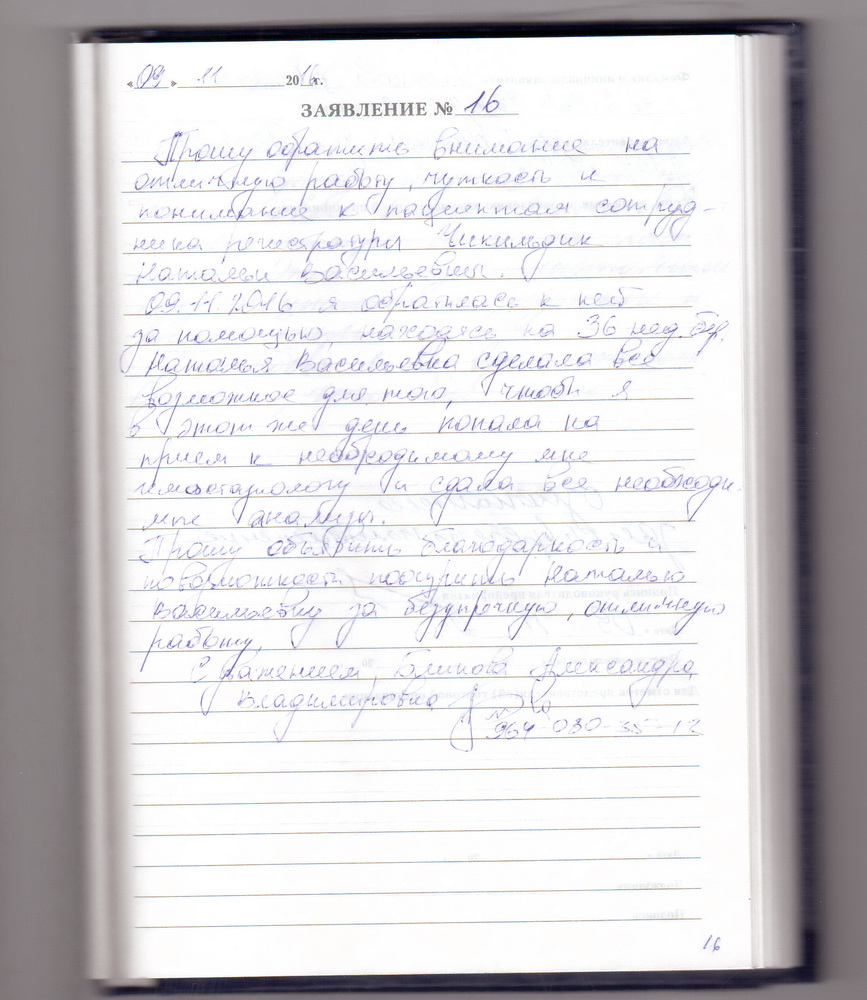 «09» 11 2016г.
ЗАЯВЛЕНИЕ № 16
Прошу обратить внимание на
отличную работу, чуткость и
понимание к пациентам сотруд-
ника регистратуры
Натальи Васильевны.
09.11.2016 я обратилась к ней
за помощью, находясь на 36 нед. бер.
Наталья Васильевна сделала все
возможное для того, чтобы я
в этот же день попала на
прием к необходимому мне
гемостазиологу и сдала все необходи-
мые анализы.
Прошу объявить благодарность и
по возможности поощрить Наталью
Васильевну за безупречную, отличную
работу.
С уважением, Блинова Александра
Владимировна
964-030-35-12
16